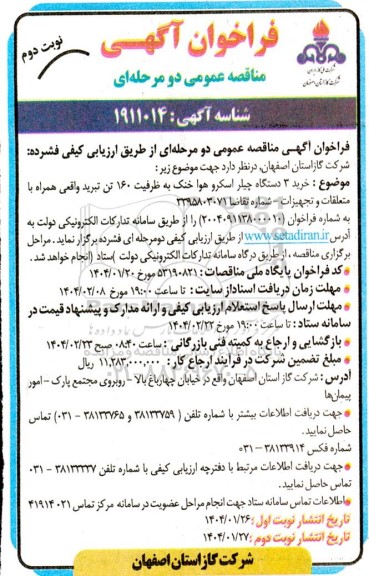 نوبت دوم
فراخوان آگهی
شرکت ملی گاز ایران
شرکت گاز استان اصفهان
مناقصه عمومی دو مرحله‌ای
شناسه آگهی: ۱۹۱۱۰۱۴
فراخوان آگهی مناقصه عمومی دو مرحله‌ای از طریق ارزیابی کیفی فشرده:
شرکت گاز استان اصفهان، در نظر دارد جهت موضوع زیر:
موضوع : خرید ۳ دستگاه چیلر اسکرو هوا خنک به ظرفیت ۱۶۰ تن تبرید واقعی همراه با
متعلقات و تجهیزات - شماره تقاضا ۳۳۹۵۸۰۳۰۷۱
به شماره فراخوان (۲۰۰۴۰۹۱۱۳۸۰۰۰۰۱۰) را از طریق سامانه تدارکات الکترونیکی دولت به
آدرس www.setadiran.ir از طریق ارزیابی کیفی دو مرحله ای فشرده برگزار نماید. مراحل
برگزاری مناقصه ، از طریق درگاه سامانه تدارکات الکترونیکی دولت (ستاد) انجام خواهد شد .
کد فراخوان پایگاه ملی مناقصات : ۵۳۱۹۰۸۲۱ مورخ ۱۴۰۴/۰۱/۲۰
مهلت زمان دریافت اسناد از سایت : تا ساعت ۱۹:۰۰ مورخ ۱۴۰۴/۰۲/۰۸
مهلت ارسال پاسخ استعلام ارزیابی کیفی و ارائه مدارک و پیشنهاد قیمت در
سامانه ستاد : تا ساعت ۱۹:۰۰ مورخ ۱۴۰۴/۰۲/۲۲
بازگشایی و ارجاع به کمیته فنی بازرگانی : ساعت ۰۸:۴۰ صبح ۱۴۰۴/۰۲/۲۳
مبلغ تضمین شرکت در فرآیند ارجاع کار : ۱۱,۲۸۳,۰۰۰,۰۰۰ ریال
آدرس : شرکت گاز استان اصفهان واقع در خیابان چهارباغ بالا - روبروی مجتمع پارک - امور
پیمان‌ها
جهت دریافت اطلاعات بیشتر با شماره تلفن ( ۳۸۱۳۳۷۵۹ و ۳۸۱۳۳۷۶۵ - ۰۳۱) تماس
حاصل نمایید.
شماره فکس ۳۸۱۳۳۹۱۴-۰۳۱
جهت دریافت اطلاعات مرتبط با دفترچه ارزیابی کیفی با شماره تلفن ۳۸۱۳۳۳۳۷ - ۰۳۱
تماس حاصل نمایید.
اطلاعات تماس سامانه ستاد جهت انجام مراحل عضویت در سامانه مرکز تماس ۰۲۱ ۴۱۹۱۴
تاریخ انتشار نوبت اول : ۱۴۰۴/۰۱/۲۶
تاریخ انتشار نوبت دوم : ۱۴۰۴/۰۱/۲۷
شرکت گاز استان اصفهان